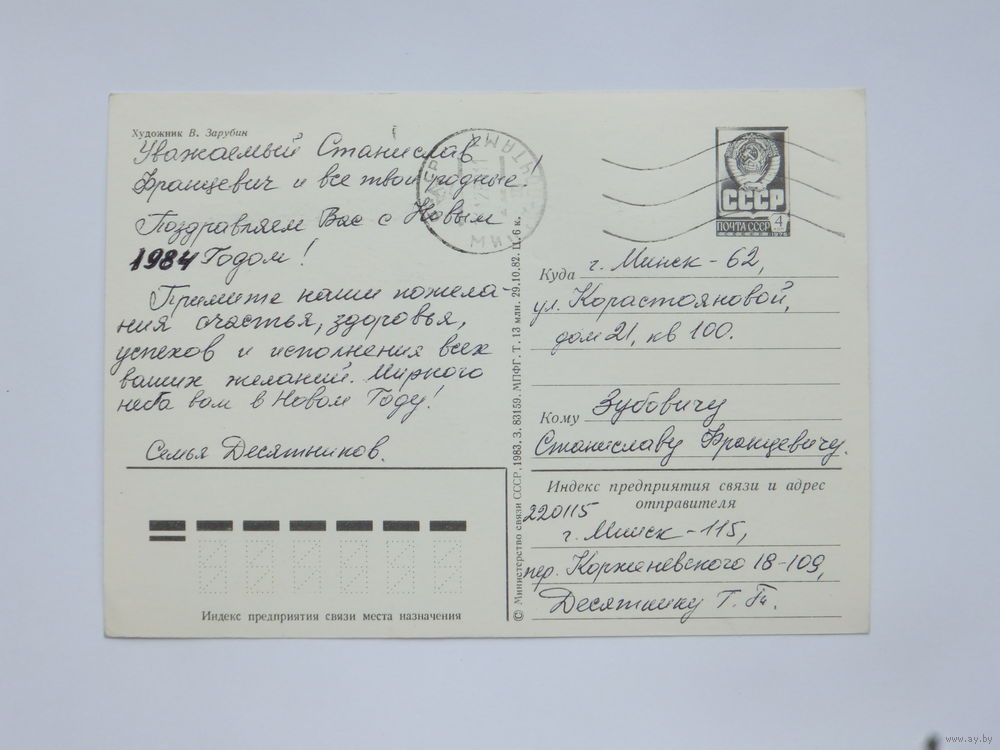 Художник В. Зарубин
Уважаемый Станислав
Францевич и все твои родные!
Поздравляем Вас с Новым
1984 Годом!
Примите наши пожела-
ния счастья, здоровья,
успехов и исполнения всех
ваших желаний. Мирного
неба вам в Новом Году!
Семья Десятников.
Индекс предприятия связи места назначения
© Министерство связи СССР, 1983. З. 83159. МПФГ. Т. 13 млн. 29.10.82. Ц. 6 к.
СССР
ПОЧТА СССР 4
Куда г. Минск - 62,
ул. Корастояновой,
дом 21, кв 100.
Кому Зубовичу
Станиславу Францевичу.
Индекс предприятия связи и адрес
отправителя
220115
г. Минск - 115,
пер. Корженевского 18-109,
Десятнику Т.
www.ay.by